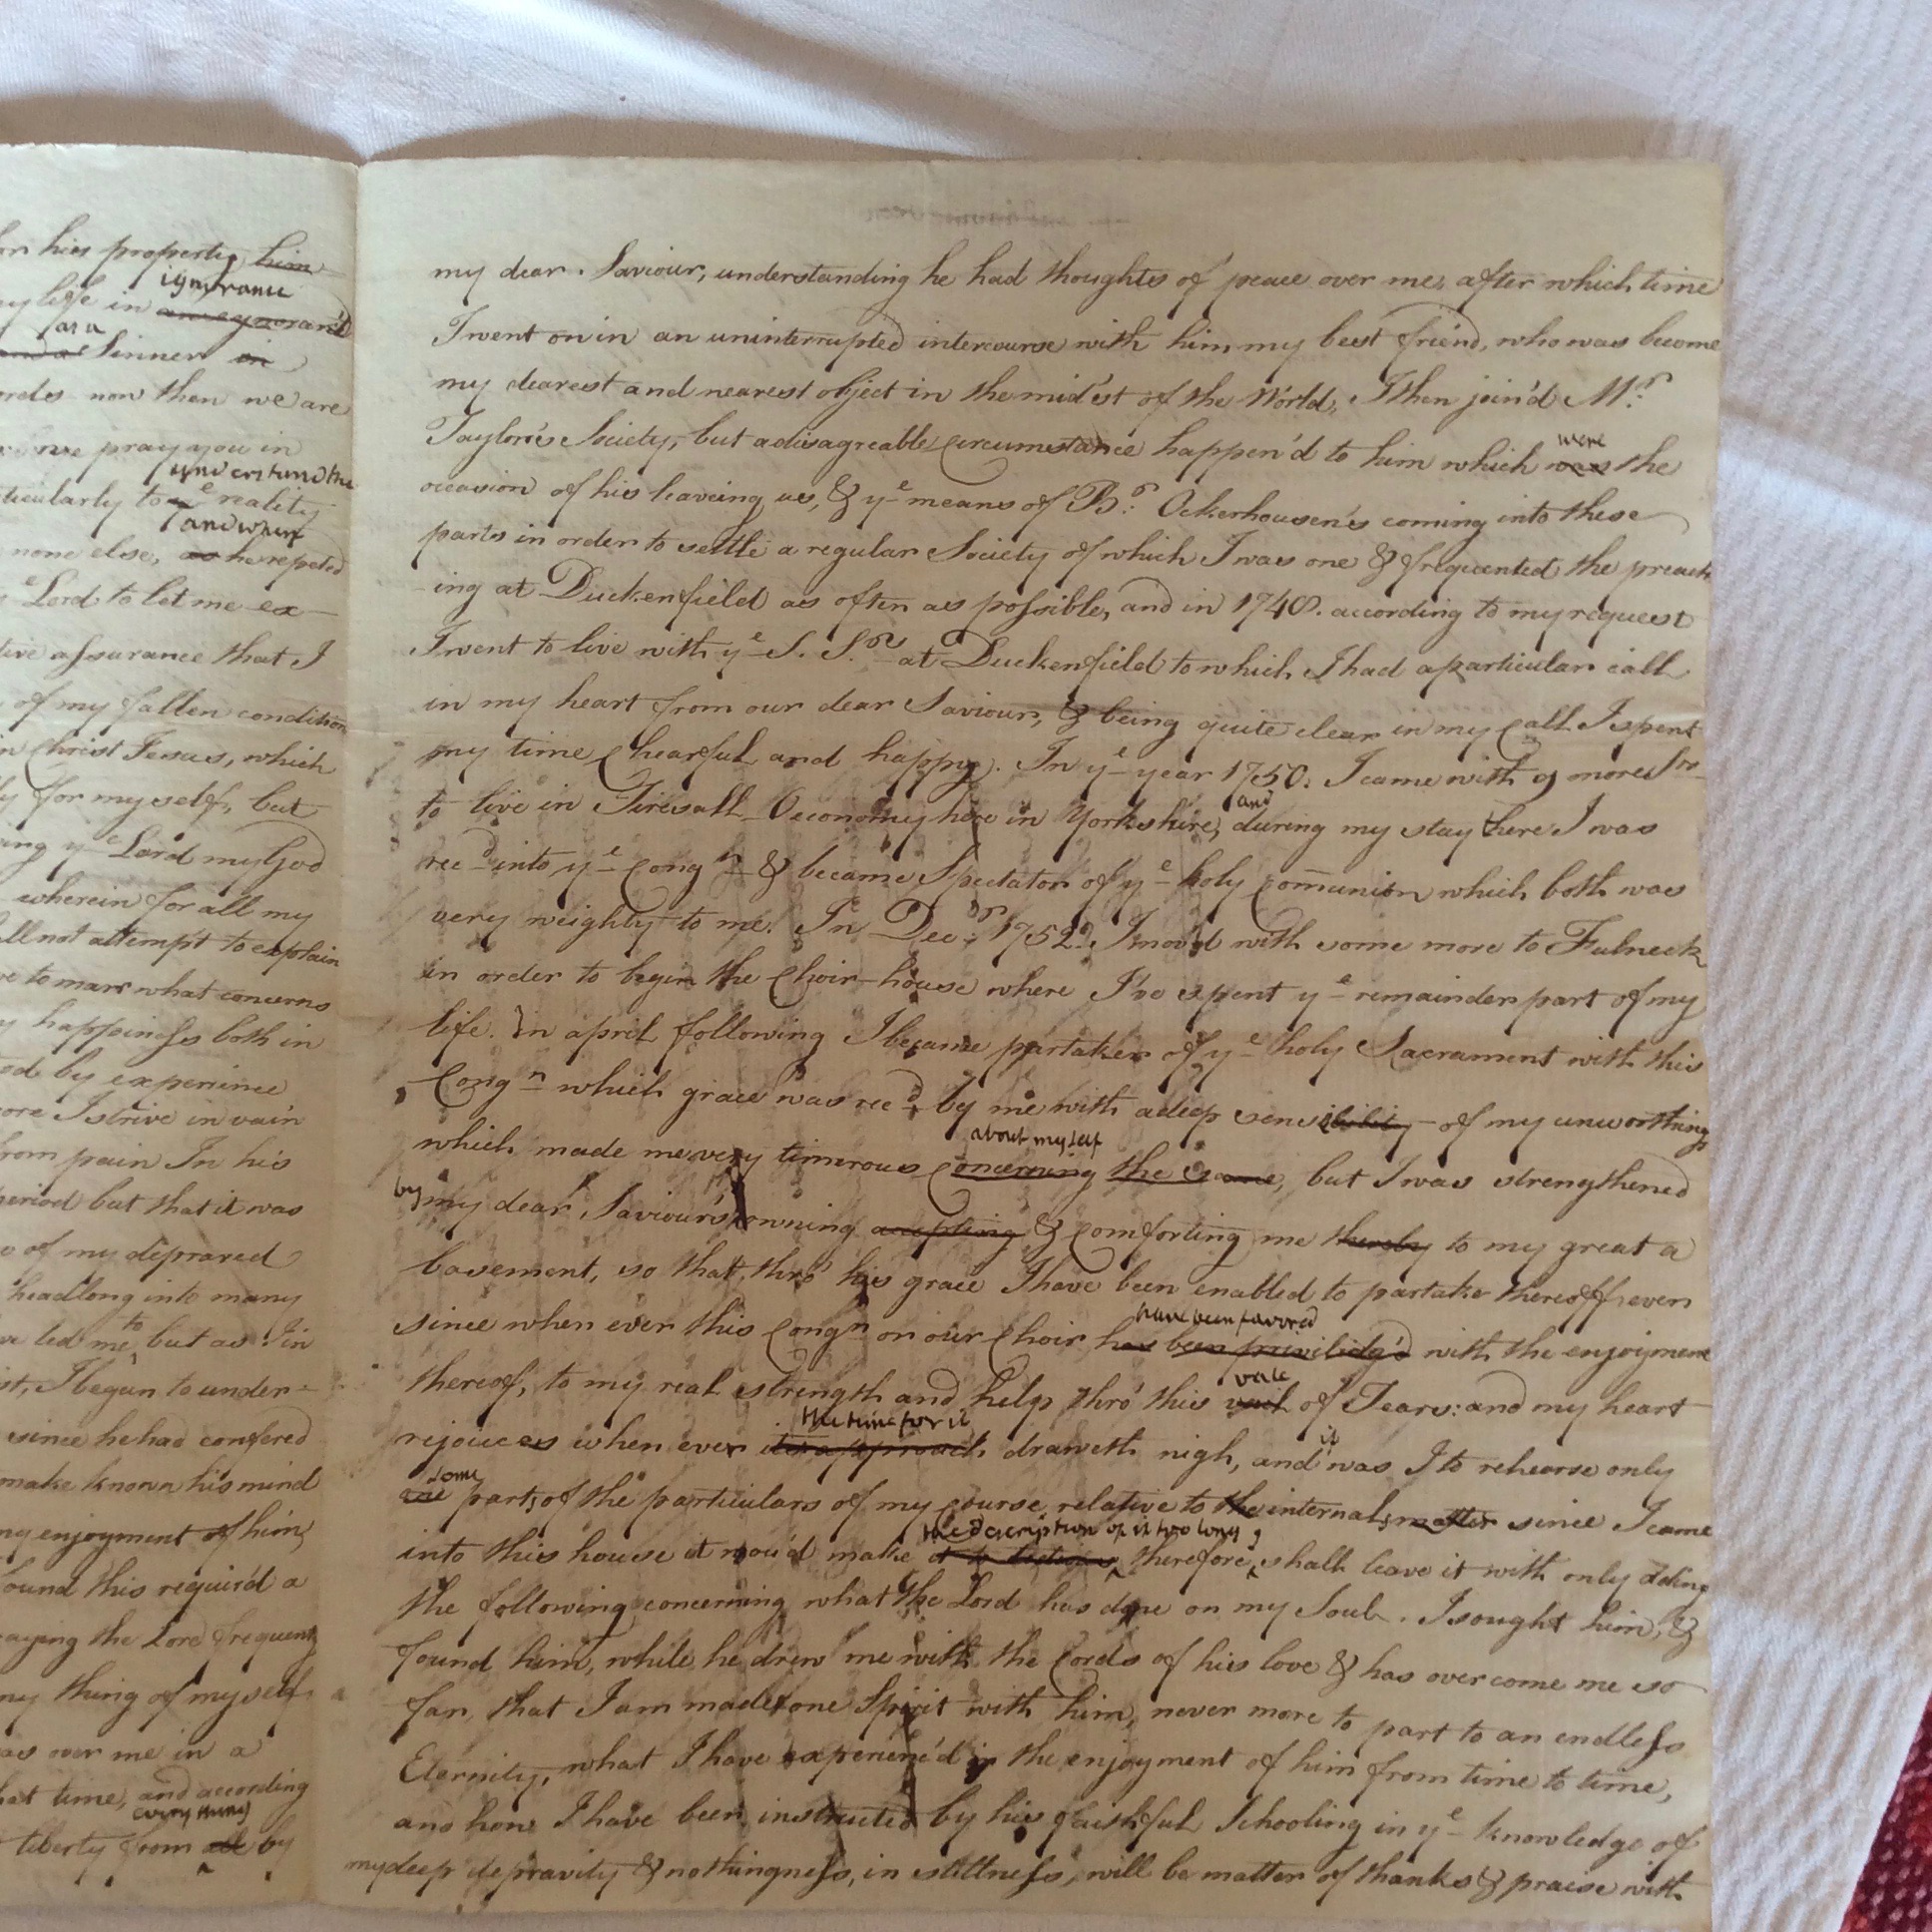 for his property, him
ignorance
my life in an ignorant
as a
and a Sinner in
words now then we are
we pray you in
understand the
particularly to ye reality
and when
none else, as he repeted
ye Lord to let me ex-
assurance that I
of my fallen condition
in Christ Jesus, which
for myself, but
ye Lord my God
wherein for all my
shall not attempt to explain
to marr what concerns
my happiness both in
by experience
more I strive in vain
from pain In his
period but that it was
of my depraved
headlong into many
to
have led me, but as I in
I began to under-
since he had confered
make known his mind
enjoyment of him,
found this requir'd a
the Lord frequent
any thing of myself
was over me in a
that time, and according
every thing
liberty from all by
my dear Saviour, understanding he had thoughts of peace over me, after which time
I went on in an uninterrupted intercourse with him my best friend, who was become
my dearest and nearest object in the mid'st of the World, I then join'd Mr.
Taylor's Society, but a disagreable Circumstance happen'd to him which was the
were
occasion of his leaveing us, & ye means of Br. Ockerhousen's coming into these
parts in order to settle a regular Society of which I was one & frequented the preach
-ing at Duckenfield as often as possible, and in 1748. according to my request
I went to live with ye S. Srs at Duckenfield to which I had a particular call
in my heart from our dear Saviour, & being quite clear in my Call I spent
my time Chearful and happy. In ye year 1750. I came with 9 more Srs
to live in Tirsall Oeconomy here in Yorkshire, and during my stay there I was
recd into ye Congn & became Spectator of ye holy Communion which both was
very weighty to me. In Decbr 1752. I mov'd with some more to Fulneck
in order to begin the Choir-house where I've spent ye remainder part of my
life. In april following I became partaker of ye holy Sacrament with this
Congn which grace was recd by me with a deep sensibility of my unworthings
about my self
which made me very timerous Concerning the same, but I was strengthened
by my dear Saviour's owning accepting & Comforting me thereby to my great a
basement, so that, thro' his grace I have been enabled to partake thereoff ever
have been favored
since when ever this Congn or our Choir has been priviledg'd with the enjoyment
vale
thereof, to my real strength and help thro' this vail of Tears: and my heart
the time for it
rejouces when ever its approach draweth nigh, and it was I to rehearse only
some
one parts of the particulars of my Course relative to the internal, matter since I came
the description of it too long,
into this house it wou'd make it to tedious therefore, shall leave it with only adding
the following concerning what the Lord has done on my Soul. I sought him, &
found him, while he drew me with the Cords of his love & has overcome me so
far, that I am made one Spirit with him, never more to part to an endless
Eternity, what I have experienc'd in the enjoyment of him from time to time,
and how I have been instructed by his faithful Schooling in ye knowledge of
my deep depravity & nothingness, in stillness, will be matter of thanks & praise with